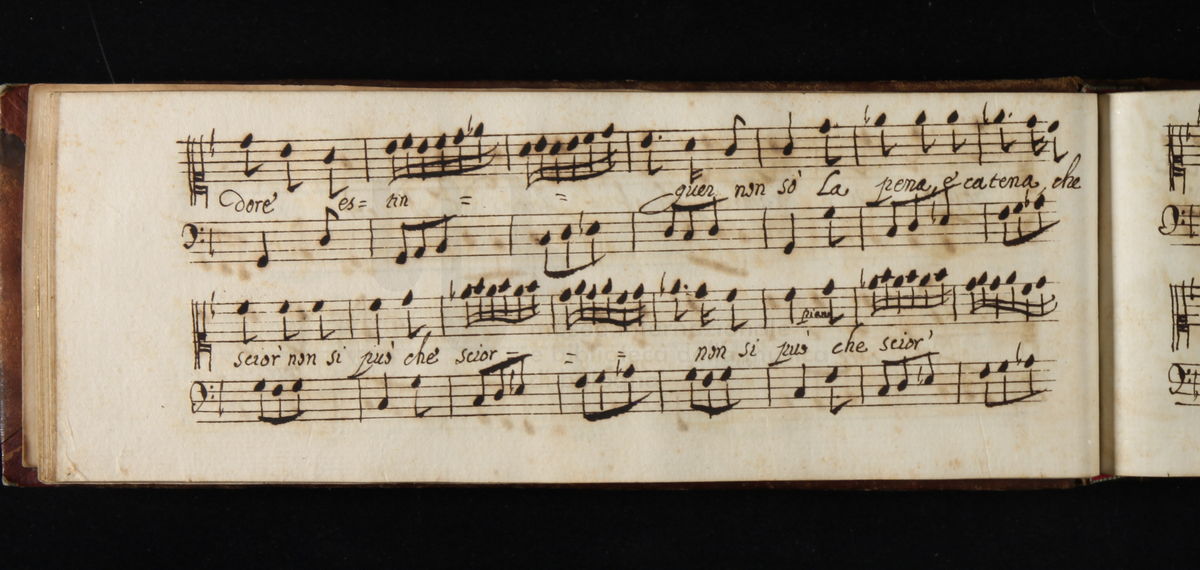 dore' es= tin = = guer non sò La pena, e' catena, che
piano
scior' non si può che' scior = = = non si può che scior'